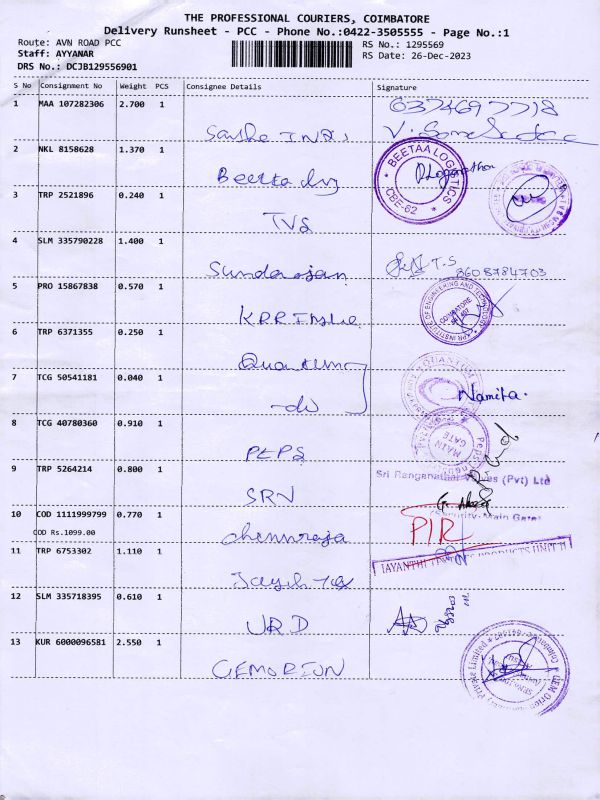 THE PROFESSIONAL COURIERS, COIMBATORE
Delivery Runsheet - PCC - Phone No.:0422-3505555 - Page No.:1
Route: AVN ROAD PCC
Staff: AYYANAR
DRS No.: DCJB129556901
RS No.: 1295569
RS Date: 26-Dec-2023
S No Consignment No Weight PCS Consignee Details Signature
1 MAA 107282306 2.700 1
2 NKL 8158628 1.370 1 Beetta
BEETAA LOGISTICS
CBE-62
3 TRP 2521896 0.240 1 TVS
4 SLM 335790228 1.400 1 Sundarajan T.S 8608784703
5 PRO 15867838 0.570 1 KPR
KPR INSTITUTE OF ENGINEERING AND TECHNOLOGY
COIMBATORE
641 407
6 TRP 6371355 0.250 1 Quantum
QUANTUM
7 TCG 50541181 0.040 1 -do Namita.
8 TCG 40780360 0.910 1 PEPS
MAIN
GATE
9 TRP 5264214 0.800 1 SRN
Sri Ranganathar Valves (Pvt) Ltd
(Security Main Gate)
10 COD 1111999799 0.770 1 chennraja PIR
COD Rs.1099.00
11 TRP 6753302 1.110 1
JAYANTHI PRODUCTS UNIT II
12 SLM 335718395 0.610 1 URD
13 KUR 6000096581 2.550 1 GEMORION
GEM Orion Private Limited